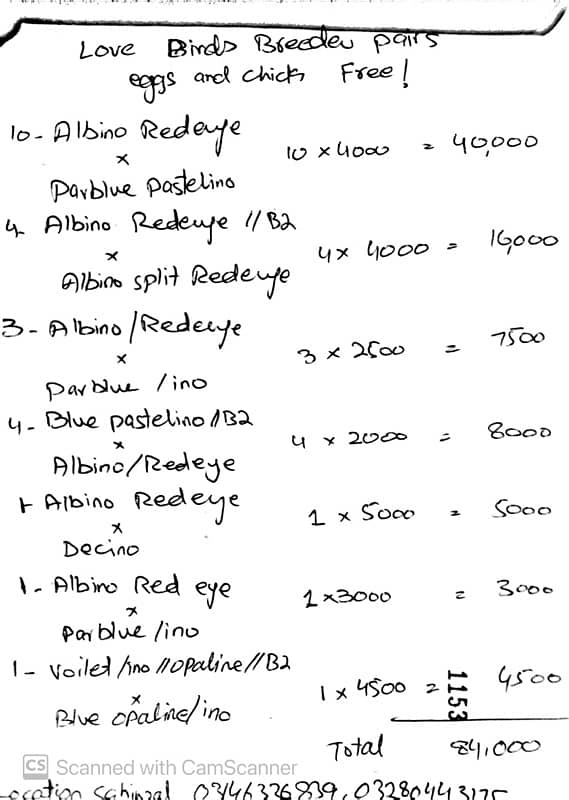 Love Birds Breeder pairs
eggs and chicks Free!
10 - Albino Redeye
x
Parblue pastelino
10 x 4000 = 40,000
4 Albino Redeye // B2
x
Albino split Redeye
4 x 4000 = 16,000
3 - Albino / Redeye
x
parblue / ino
3 x 2500 = 7500
4 - Blue pastelino // B2
x
Albino / Redeye
4 x 2000 = 8000
1 Albino Redeye
x
Decino
1 x 5000 = 5000
1 - Albino Red eye
x
Parblue / ino
1 x 3000 = 3000
1 - Voiled / ino // opaline // B2
x
Blue opaline / ino
1 x 4500 = 4500
1153
Total 84,000
CS Scanned with CamScanner
Location Sahiwal